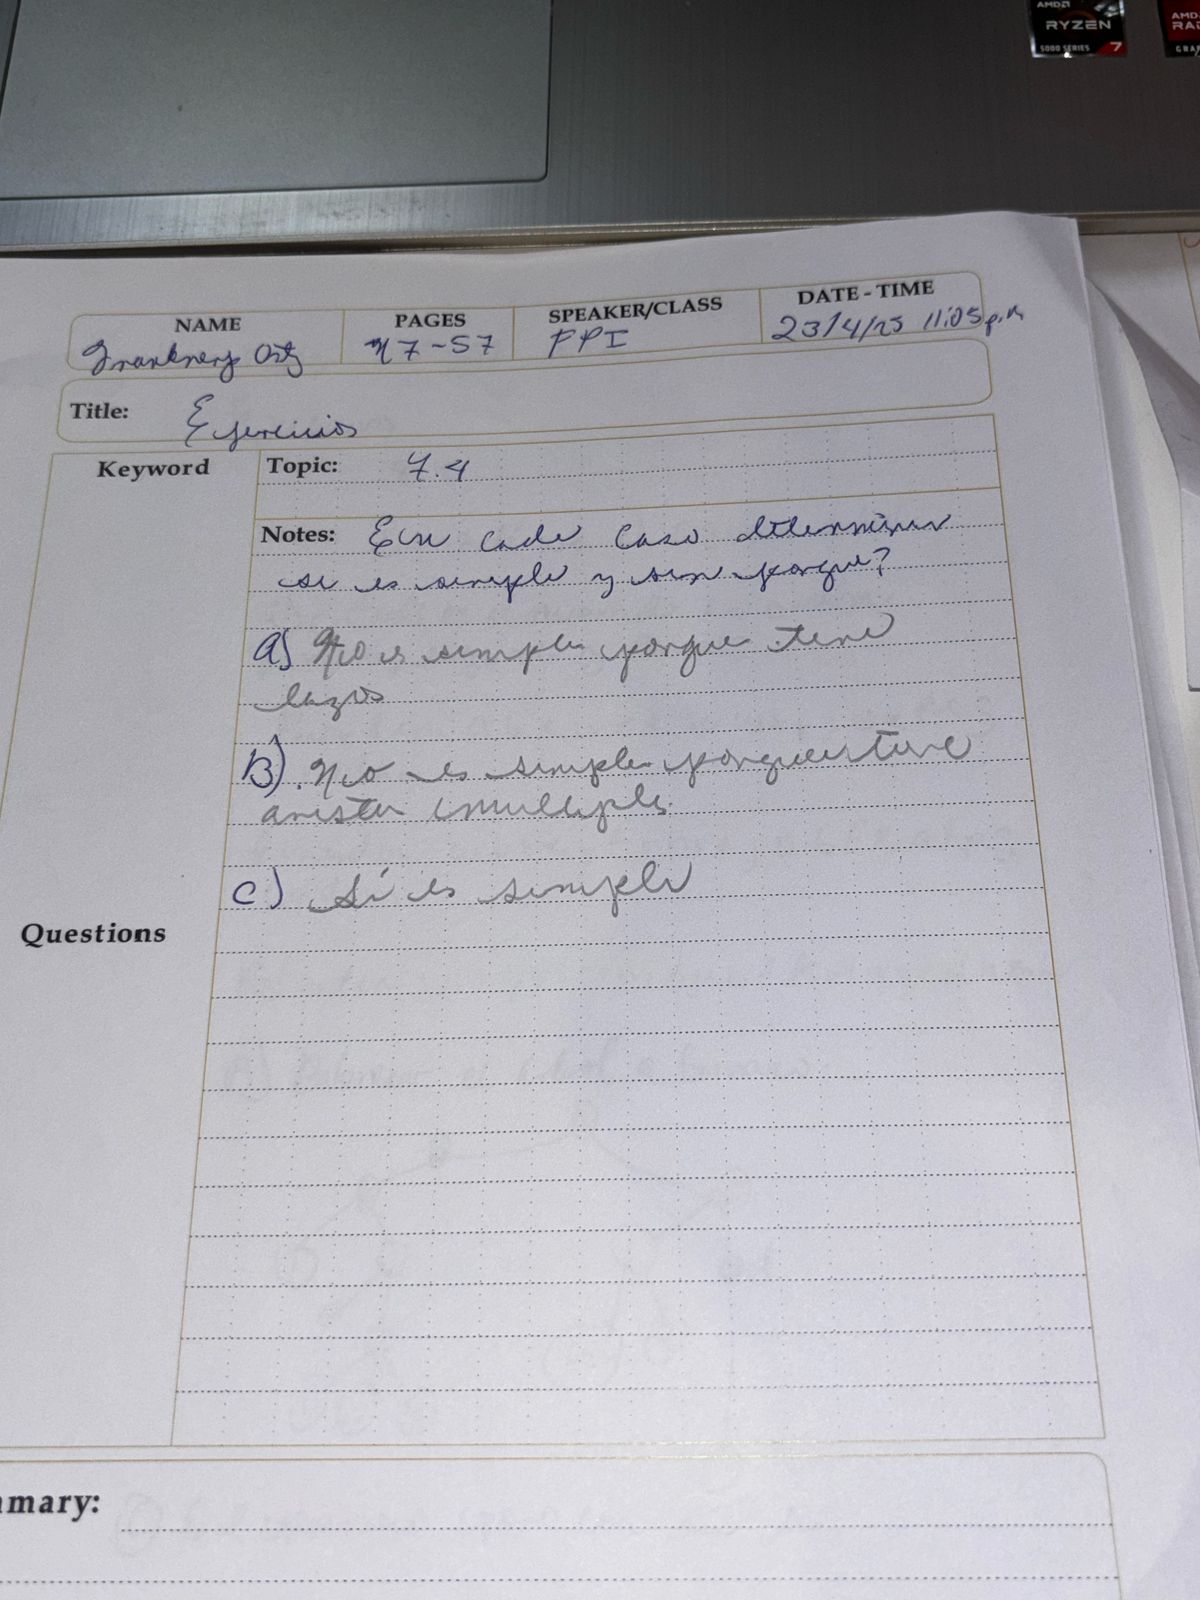 AMD
RYZEN
5000 SERIES 7
AMD
NAME
PAGES
SPEAKER/CLASS
DATE - TIME
47-57
FPI
23/4/25 11:05 p.m
Title: Ejercicios
Keyword
Topic: 7.4
Notes: En cada caso determinar
si es simple y sin porque?
a) No es simple porque tiene
lazos
B). No es simple porque tiene
arista multiple.
C) Sí es simple
Questions
mmary: